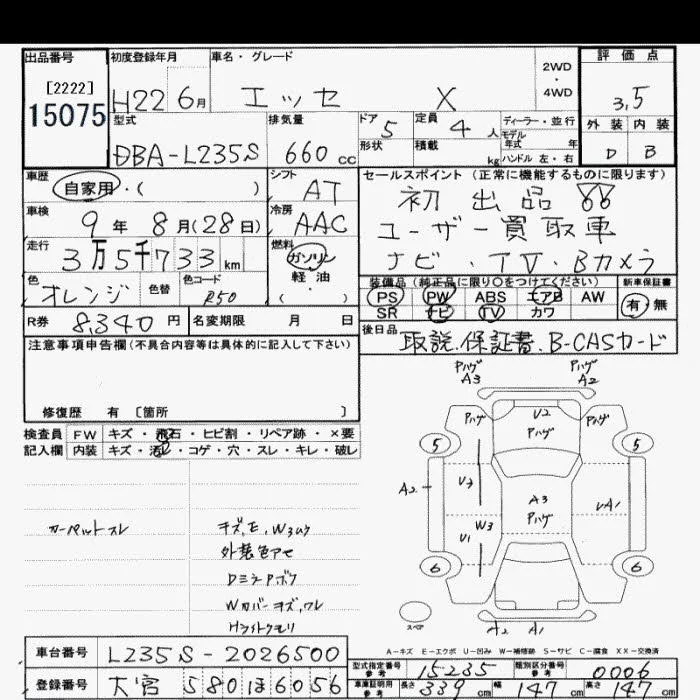 出品番号 初度登録年月 車名・グレード 評価点
[2222] 15075 H22 6月 エッセ X 2WD・4WD 3,5
型式 排気量 ドア 定員 ディーラー・並行 外装 内装
DBA-L235S 660cc 5 4人 モデル年式 年 D B
形状 積載 kg ハンドル 左・右
車歴 シフト セールスポイント(正常に機能するものに限ります)
自家用・( ) AT 初出品
車検 9年8月(28日) 冷房 AAC ユーザー買取車
走行 3万5千733km 燃料 ガソリン 軽油 ( ) ナビ・TV・Bカメラ
色 オレンジ 色替 色コード R50 装備品(純正品に限り○をつけてください) 新車保証書
PS PW ABS エアB AW 有・無
SR ナビ TV カワ
R券 8,340円 名変期限 月 日 後日品 取説.保証書.B-CASカード
注意事項申告欄(不具合内容等は具体的に記入して下さい)
修復歴 有 〔箇所 〕
検査員 FW キズ・飛石・ヒビ割・リペア跡・×要
記入欄 内装 キズ・汚レ・コゲ・穴・スレ・キレ・破レ
Pハゲ A3 Pハゲ A2
Pハゲ U2 Pハゲ Pハゲ
5 5
A2 A3 Pハゲ
W3 U1
6 6
スペア A2 A1
カーペットスレ
外装色アセ
DミラーPボケ
Wカバーキズ,ワレ
Hライトクモリ
A-キズ E-エクボ U-凹み W-補修跡 S-サビ C-腐食 XX-交換済
車台番号 L235S-2026500 型式指定番号 参考 15235 類別区分番号 参考 0006
登録番号 大宮 580 ほ 6056 車庫証明用 参考 長さ 339cm 幅 147cm 高さ 147cm